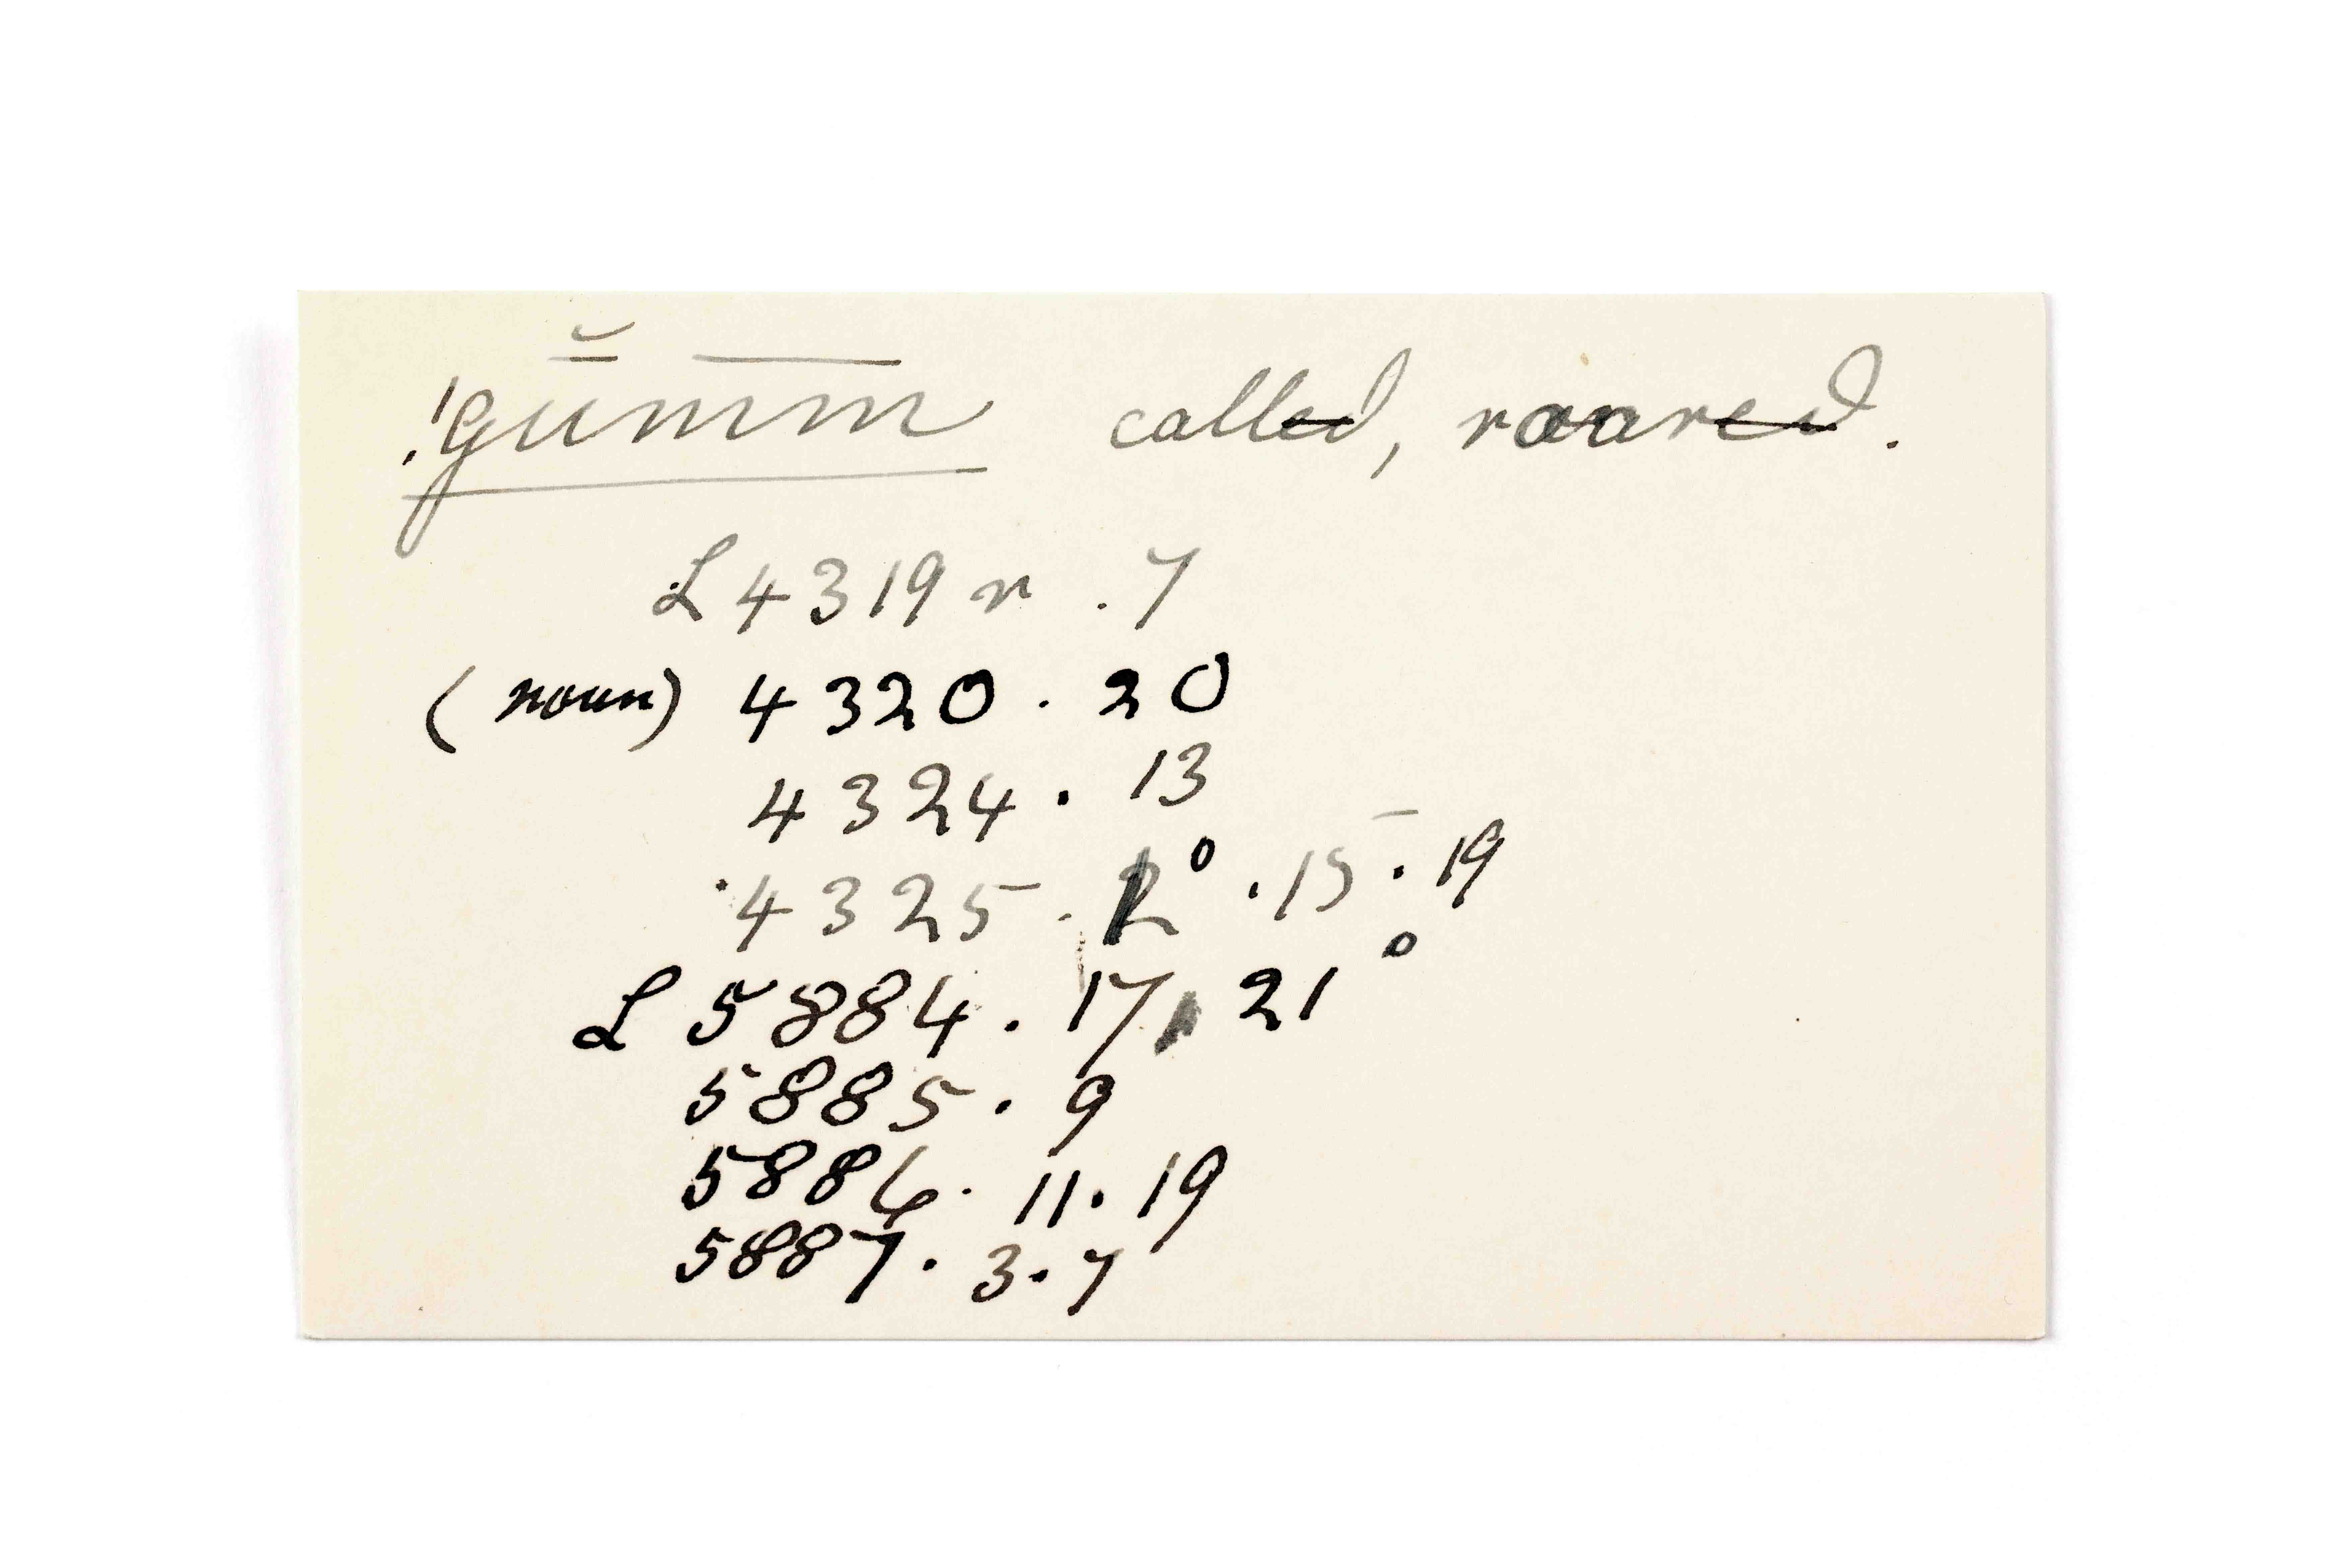 !gŭmm called, roared.
L 4319 r . 7
(noun) 4320 . 20
4324 . 13
4325 . 2° . 15 . 19
L 5884 . 17, 21°
5885 . 9
5886 . 11 . 19
5887 . 3 . 7